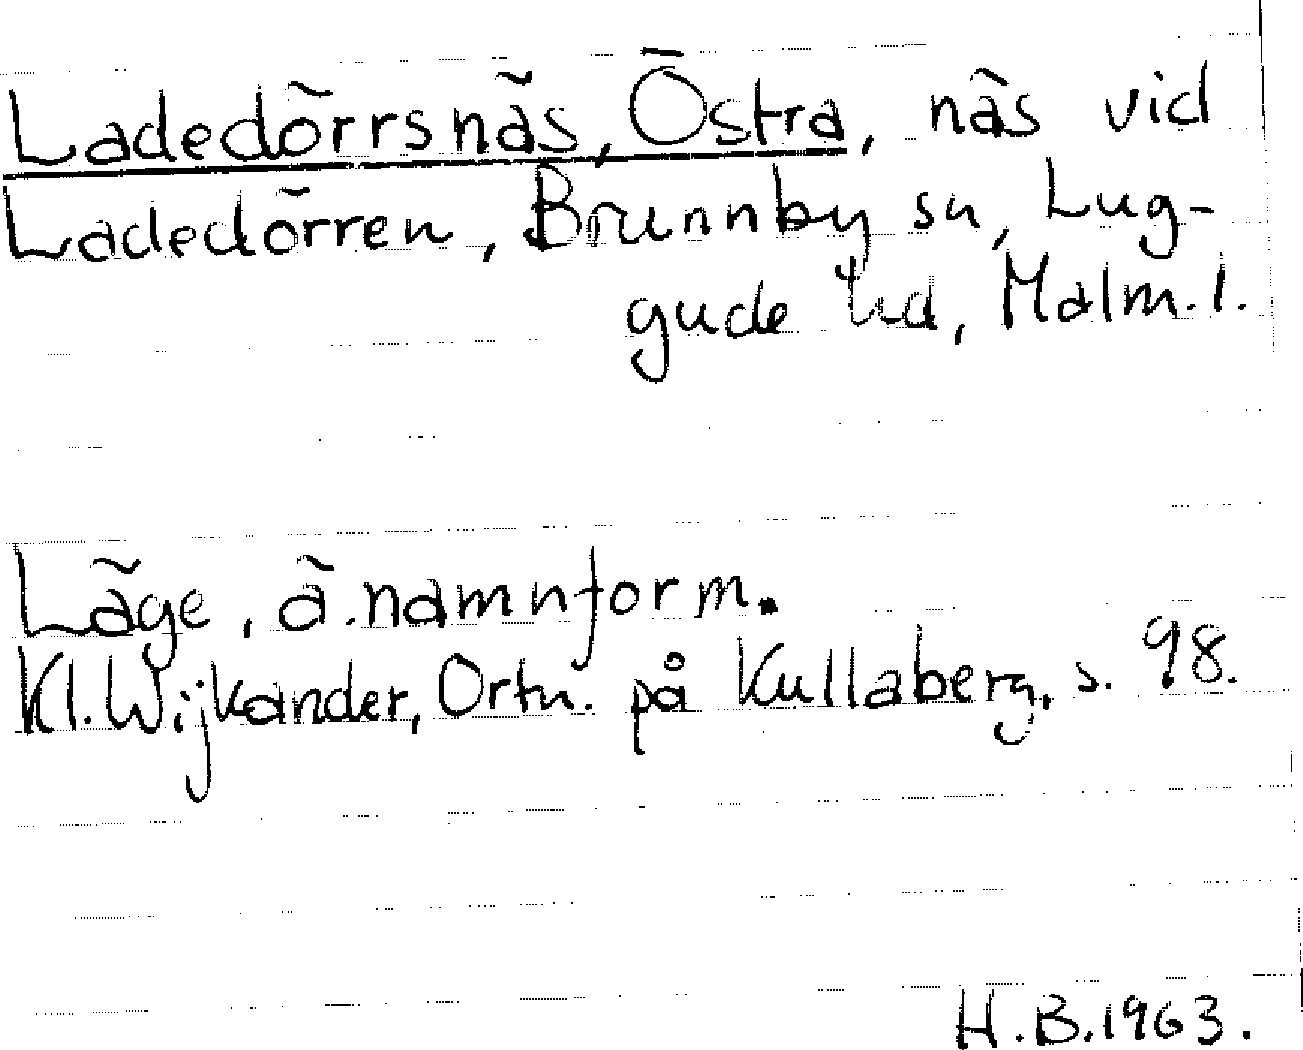 Ladedörrsnäs, Östra, näs vid
Ladedörren, Brunnby sn, Lug-
gude hd, Malm. l.
Läge, ä. namnform.
Kl. Wijkander, Ortn. på Kullaberg, s. 98.
H.B. 1963.